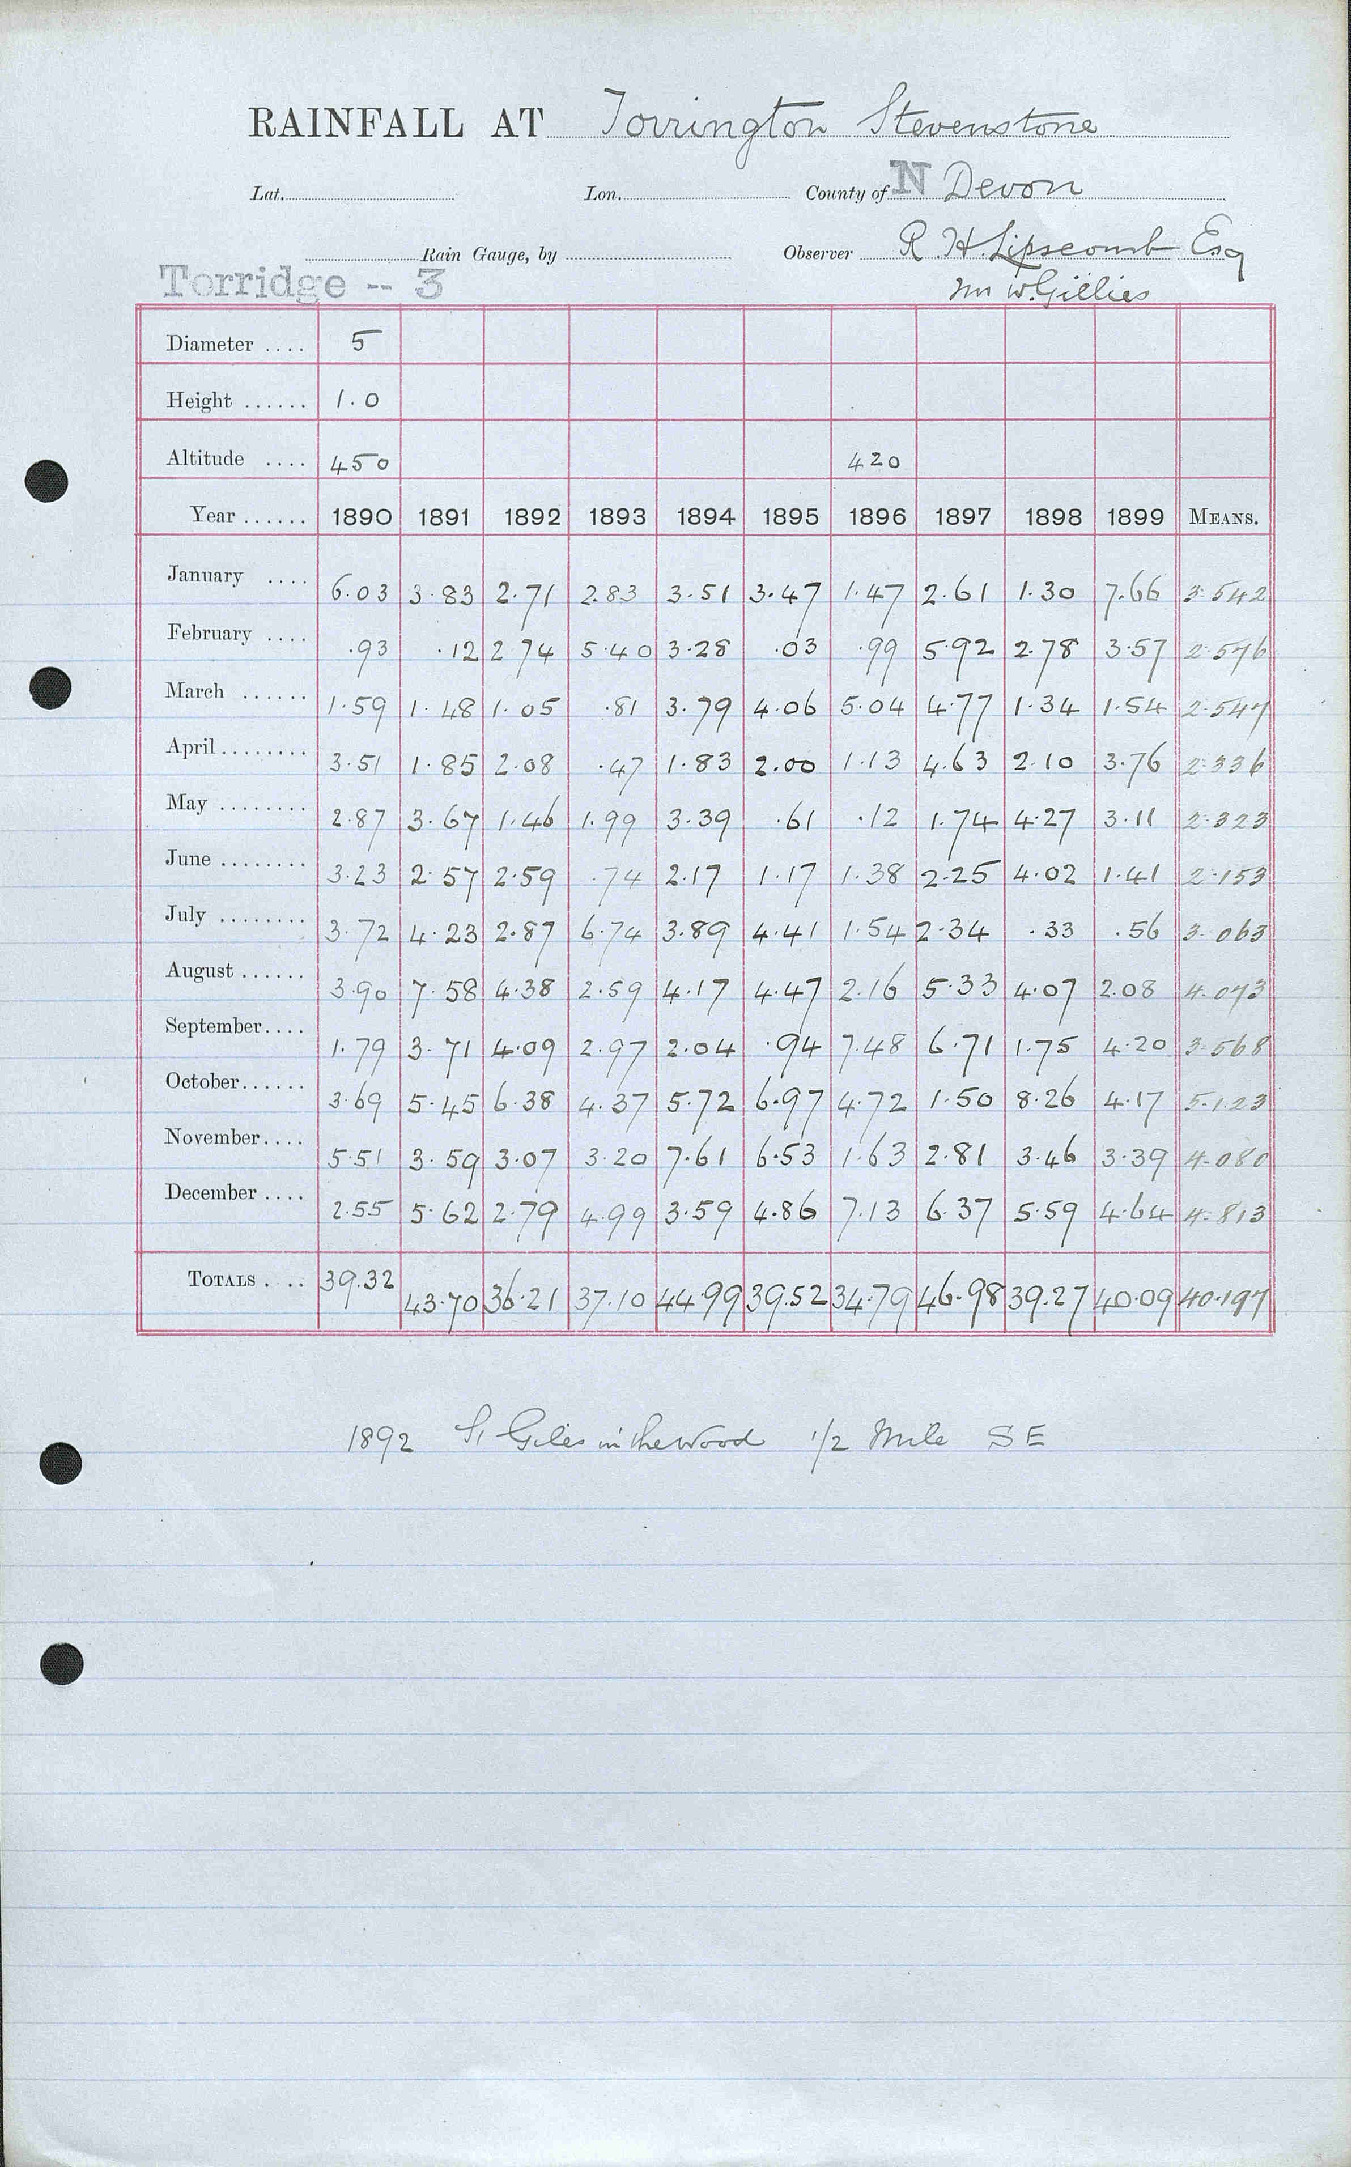 RAINFALL AT Torrington Stevenstone
Lat. Lon. County of N Devon
Rain Gauge, by Observer R. H. Lipscomb Esq
Torridge -- 3 W. Gillies
Diameter .... 5
Height ...... 1.0
Altitude .... 450 420
Year ...... 1890 1891 1892 1893 1894 1895 1896 1897 1898 1899 MEANS.
January .... 6.03 3.83 2.71 2.83 3.51 3.47 1.47 2.61 1.30 7.66 3.542
February .... .93 .12 2.74 5.40 3.28 .03 .99 5.92 2.78 3.57 2.576
March ...... 1.59 1.48 1.05 .81 3.79 4.06 5.04 4.77 1.34 1.54 2.547
April ........ 3.51 1.85 2.08 .47 1.83 2.00 1.13 4.63 2.10 3.76 2.336
May ........ 2.87 3.67 1.46 1.99 3.39 .61 .12 1.74 4.27 3.11 2.323
June ........ 3.23 2.57 2.59 .74 2.17 1.17 1.38 2.25 4.02 1.41 2.153
July ........ 3.72 4.23 2.87 6.74 3.89 4.41 1.54 2.34 .33 .56 3.063
August ...... 3.90 7.58 4.38 2.59 4.17 4.47 2.16 5.33 4.07 2.08 4.073
September.... 1.79 3.71 4.09 2.97 2.04 .94 7.48 6.71 1.75 4.20 3.568
October...... 3.69 5.45 6.38 4.37 5.72 6.97 4.72 1.50 8.26 4.17 5.123
November.... 5.51 3.59 3.07 3.20 7.61 6.53 1.63 2.81 3.46 3.39 4.080
December .... 2.55 5.62 2.79 4.99 3.59 4.86 7.13 6.37 5.59 4.64 4.813
TOTALS .... 39.32 43.70 36.21 37.10 44.99 39.52 34.79 46.98 39.27 40.09 40.197
1892 St Giles in the Wood 1/2 Mile SE